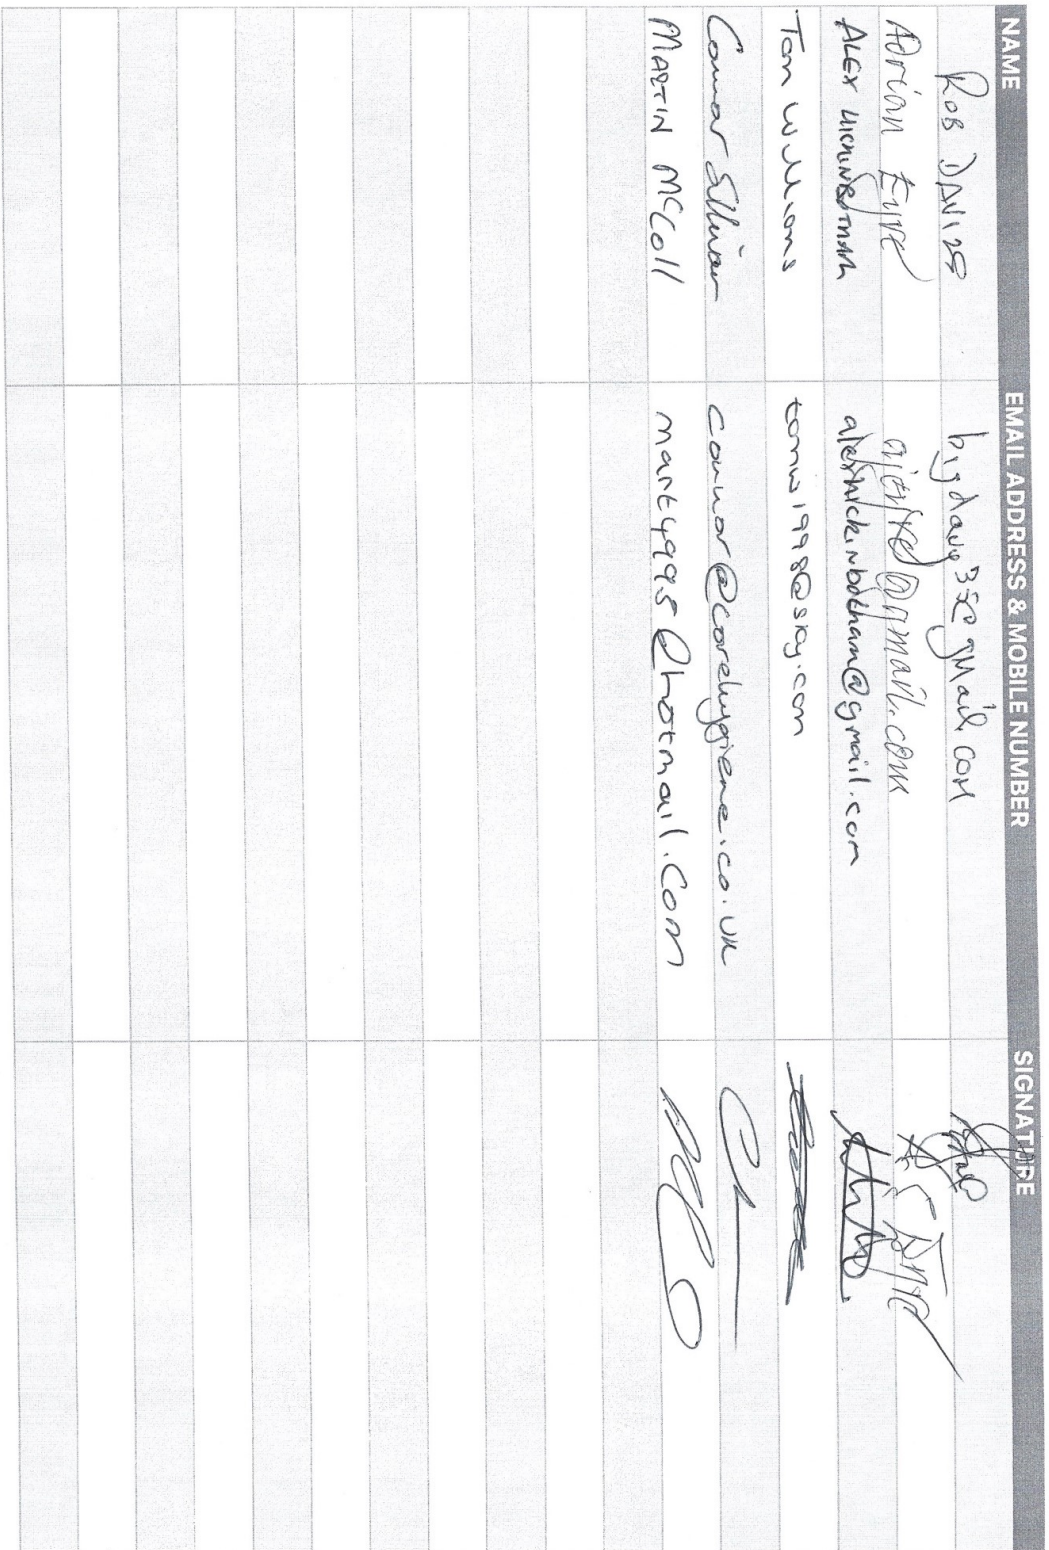 NAME EMAIL ADDRESS & MOBILE NUMBER SIGNATURE
ROB DAVIES bigdave35@gmail.com
Adrian Eyre @gmail.com
ALEX HICKINBOTHAM alexhickinbotham@gmail.com
Tom Williams tomw1998@sky.com
Connor Sullivan connor@corehygiene.co.uk
MARTIN McColl marty995@hotmail.com